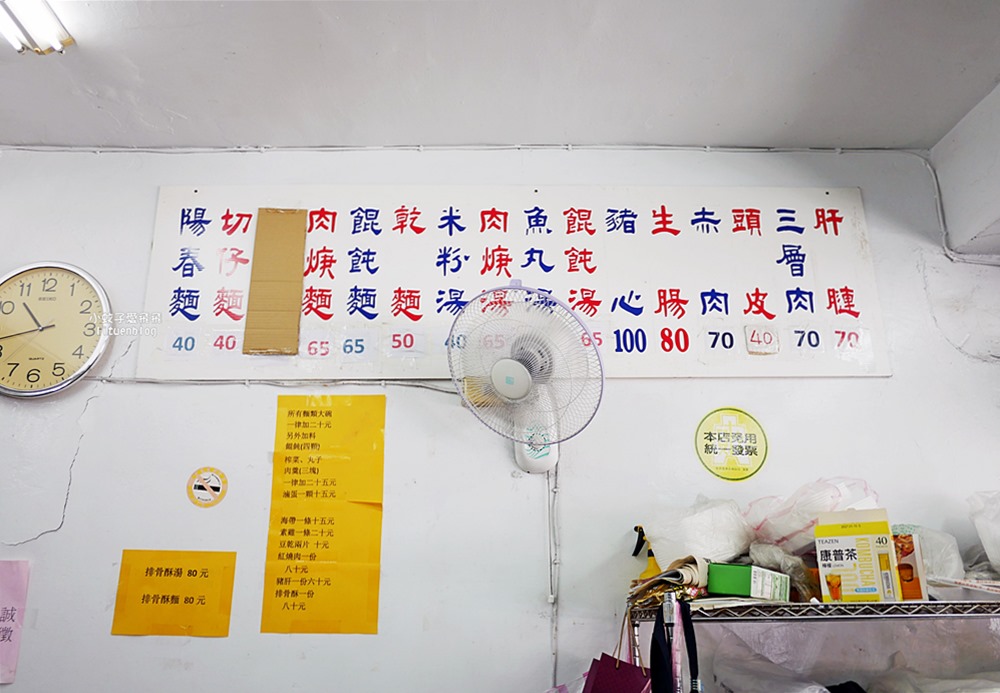 陽春麵 40
切仔麵 40
肉焿麵 65
餛飩麵 65
乾麵 50
米粉湯 40
肉焿湯 65
魚丸湯
餛飩湯 65
豬心 100
生腸 80
赤肉 70
頭皮 40
三層肉 70
肝腱 70
12
SEIKO
QUARTZ
小蚊子愛飛飛
所有麵類大碗
一律加二十元
另外加料
餛飩(四顆)
榨菜、丸子
肉羹(三塊)
一律加二十五元
滷蛋一顆十五元
海帶一條十五元
素雞一條二十元
豆乾兩片 十元
紅燒肉一份
八十元
豬肝一份六十元
排骨酥一份
八十元
排骨酥湯 80 元
排骨酥麵 80 元
誠
徵
本店免用
統一發票
TEAZEN
康普茶
40
KOMBUCHA